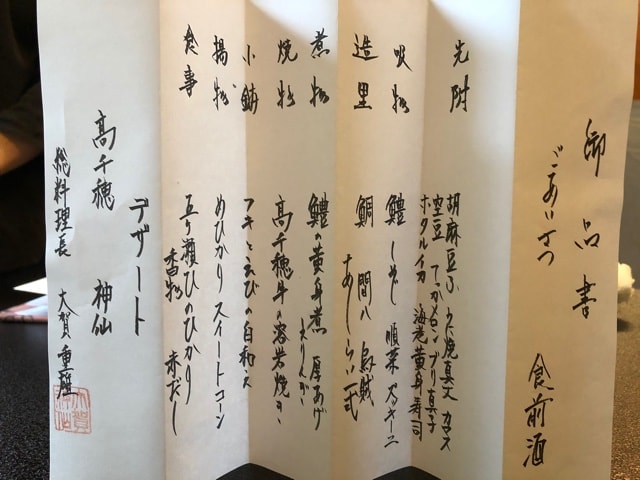 御品書
ごあいさつ 食前酒
先附
胡麻豆ふ うに焼真丈 カマス
空豆 てっかメロン ブリ真子
ホタルイカ 海老黄身寿司
吸物
鱧 しめじ 順菜 ズッキーニ
造里
鯛 間八 烏賊
あしらい一式
煮物
鱧の黄身煮 厚あげ
焼物
高千穂牛の溶岩焼き
小鉢
フキとえびの白和え
揚物
めひかり スイートコーン
食事
五ヶ瀬ひのひかり
香物 赤だし
デザート
高千穂 神仙
総料理長 大賀重